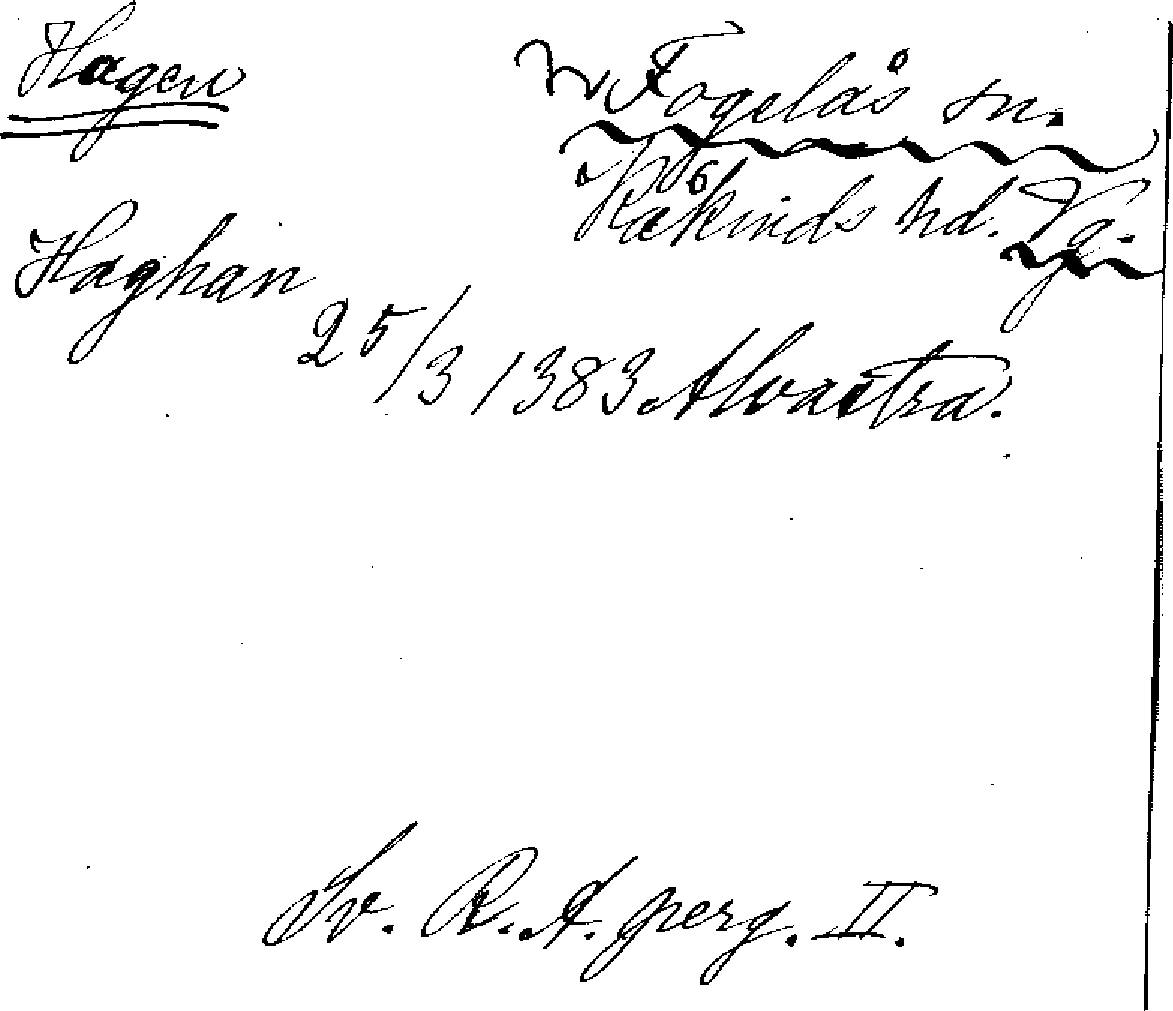 Hagen
Fogelås sn.
Kåkinds hd. Vg.
Haghan
25/3 1383 Alvastra.
Sv. R. A. perg. II.